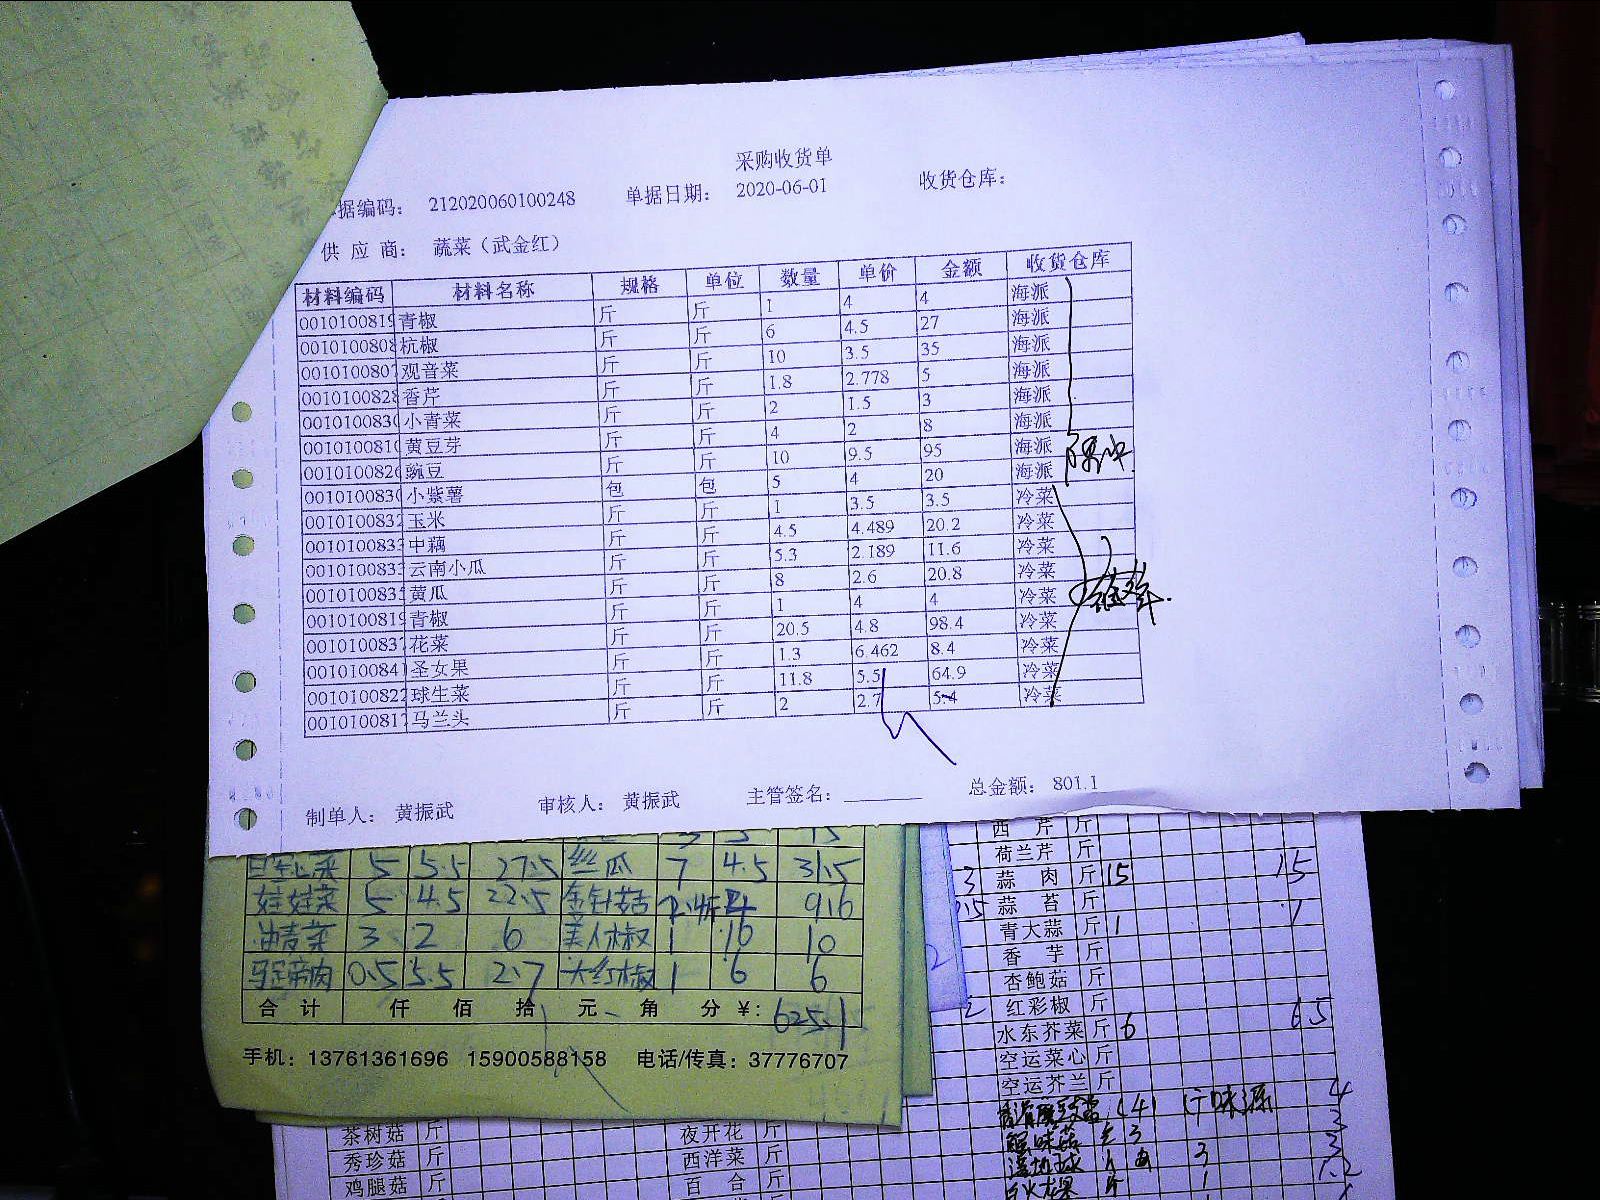 采购收货单
据编码： 212020060100248 单据日期： 2020-06-01 收货仓库：
供 应 商： 蔬菜（武金红）
材料编码 材料名称 规格 单位 数量 单价 金额 收货仓库
0010100819 青椒 斤 斤 1 4 4 海派
0010100808 杭椒 斤 斤 6 4.5 27 海派
0010100807 观音菜 斤 斤 10 3.5 35 海派
0010100828 香芹 斤 斤 1.8 2.778 5 海派
0010100830 小青菜 斤 斤 2 1.5 3 海派
0010100810 黄豆芽 斤 斤 4 2 8 海派
0010100826 豌豆 斤 斤 10 9.5 95 海派
0010100830 小紫薯 包 包 5 4 20 海派
0010100832 玉米 斤 斤 1 3.5 3.5 冷菜
0010100833 中藕 斤 斤 4.5 4.489 20.2 冷菜
0010100833 云南小瓜 斤 斤 5.3 2.189 11.6 冷菜
0010100835 黄瓜 斤 斤 8 2.6 20.8 冷菜
0010100819 青椒 斤 斤 1 4 4 冷菜
0010100837 花菜 斤 斤 20.5 4.8 98.4 冷菜
0010100841 圣女果 斤 斤 1.3 6.462 8.4 冷菜
0010100822 球生菜 斤 斤 11.8 5.5 64.9 冷菜
0010100817 马兰头 斤 斤 2 2.7 5.4 冷菜
制单人： 黄振武 审核人： 黄振武 主管签名： 总金额： 801.1
5 5.5 27.5 丝瓜 7 4.5 31.5
娃娃菜 5 4.5 22.5 金针菇 2.4斤 4 9.6
油麦菜 3 2 6 美人椒 1 10 10
马蹄肉 0.5 5.5 2.7 大红椒 1 6 6
合 计 仟 佰 拾 元 角 分 ¥： 625.1
手机：13761361696 15900588158 电话/传真：37776707
西 芹 斤
荷兰芹 斤
3 蒜 肉 斤 15 15
蒜 苔 斤
青大蒜 斤 1
香 芋 斤
杏鲍菇 斤
2 红彩椒 斤
水东芥菜 斤 6 6.5
空运菜心 斤
空运芥兰 斤
茶树菇 斤 夜开花 斤
秀珍菇 斤 西洋菜 斤
鸡腿菇 斤 百 合 斤